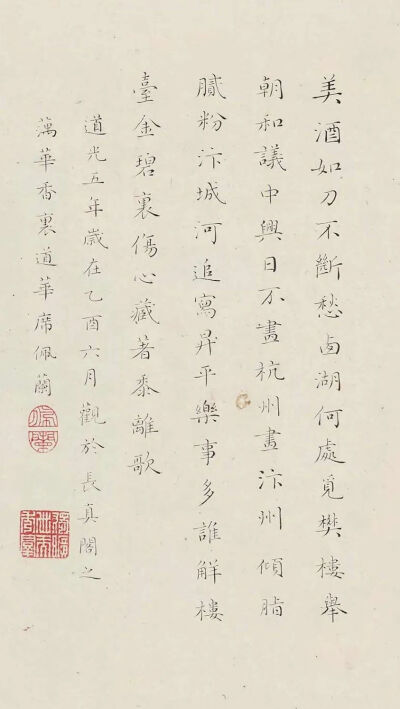 美酒如刀不斷愁卤湖何處覓樊樓舉
朝和議中興日不畫杭州畫汴州傾脂
膩粉汴城河追寫昇平樂事多誰解樓
臺金碧裏傷心藏著黍離歌
道光五年歲在乙酉六月觀於長真閣之
蕅華香裏道華席佩蘭